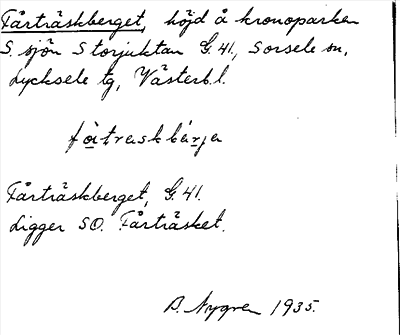 Fårträskberget, höjd å kronoparken
S. sjön Storjuktan G. 41, Sorsele sn,
Lycksele tg, Västerb. l.
fåtraskbárja
Fårträskberget, G. 41.
Ligger SO. Fårträsket.
B. Nygren 1935.